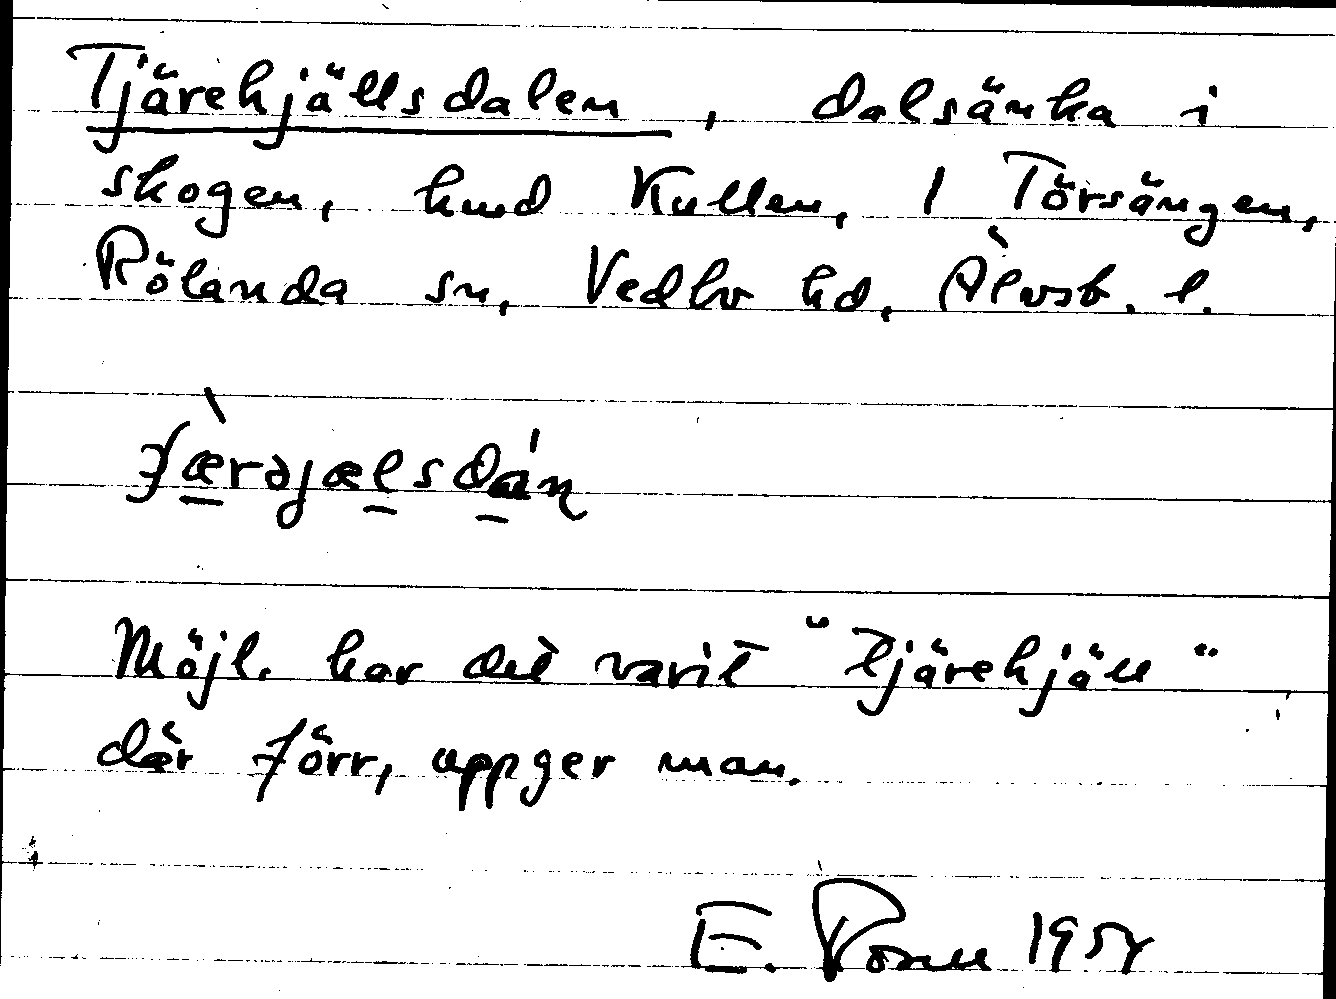 Tjärehjällsdalen, dalsänka i
skogen, hmd Kullen, 1 Törsängen,
Rölanda sn, Vedbo hd, Älvsb. l.
Möjl. har det varit "tjärehjäll"
där förr, uppger man.
E. 1954